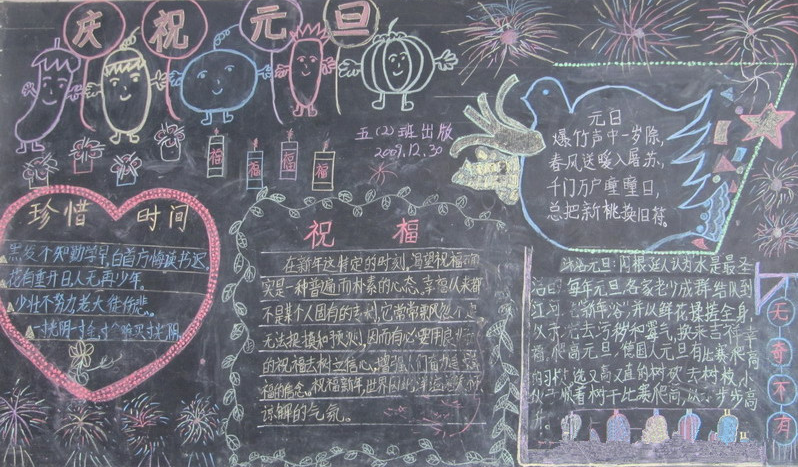 庆祝元旦
五(2)班出版
2009.12.30
福 福 福 福
元日
爆竹声中一岁除,
春风送暖入屠苏,
千门万户曈曈日,
总把新桃换旧符。
珍惜 时间
黑发不知勤学早,白首方悔读书迟。
花有重开日人无再少年。
少壮不努力老大徒伤悲。
一寸光阴一寸金,寸金难买寸光阴
祝 福
在新年这特定的时刻,渴望祝福
实是一种普遍而朴素的心态,幸福从来都
不是某个人固有的专利,它常常飘忽不定
无法把握和预测,因而有必要用良好
的祝福去树立信心,增强人们奋力追
福的信念。祝福新年,世界因此洋溢着人
谅解的气氛。
沐浴元旦:阿根廷人认为水是最圣
洁的每年元旦,各家老少成群结队到
江河 "新年浴"并以鲜花揉搓全身,
以示 去污秽和霉气,换来吉祥幸
福,爬高元旦,德国人元旦有比赛爬高
的习 选又高又直的树砍去树枝,小
伙子顺着树干比赛爬高,以示步步高
升。
无奇不有